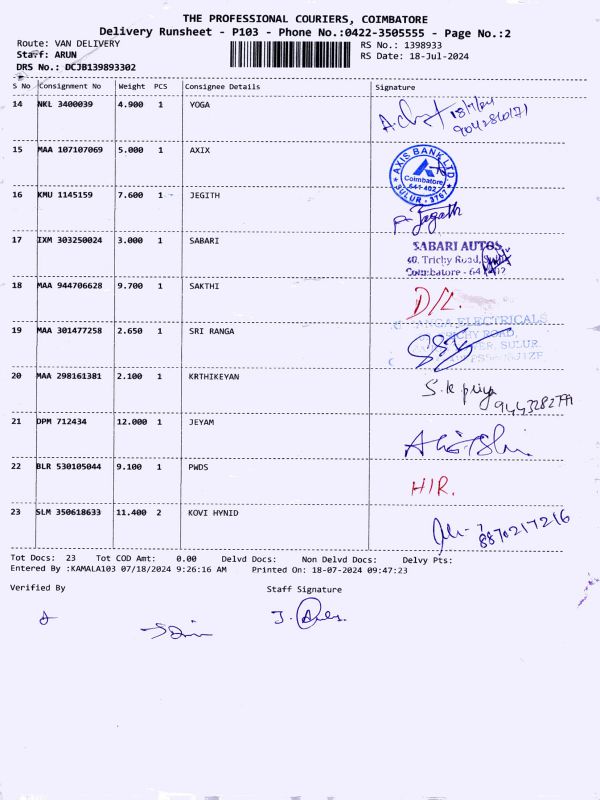 THE PROFESSIONAL COURIERS, COIMBATORE
Delivery Runsheet - P103 - Phone No.:0422-3505555 - Page No.:2
Route: VAN DELIVERY RS No.: 1398933
Staff: ARUN RS Date: 18-Jul-2024
DRS No.: DCJB139893302
S No Consignment No Weight PCS Consignee Details Signature
14 NKL 3400039 4.900 1 YOGA
18/7/24
9042860171
15 MAA 107107069 5.000 1 AXIX
AXIS BANK LTD
Coimbatore
641 402
SULUR - 3767
16 KMU 1145159 7.600 1 JEGITH
P Jagath
17 IXM 303250024 3.000 1 SABARI
SABARI AUTOS
40, Trichy Road,
Coimbatore - 641 402
18 MAA 944706628 9.700 1 SAKTHI
D/L.
19 MAA 301477258 2.650 1 SRI RANGA
RANGA ELECTRICALS
TRICHY ROAD,
SULUR
20 MAA 298161381 2.100 1 KRTHIKEYAN
S.k priya
9443282799
21 DPM 712434 12.000 1 JEYAM
22 BLR 530105044 9.100 1 PWDS
H/R.
23 SLM 350618633 11.400 2 KOVI HYNID
8870217216
Tot Docs: 23 Tot COD Amt: 0.00 Delvd Docs: Non Delvd Docs: Delvy Pts:
Entered By :KAMALA103 07/18/2024 9:26:16 AM Printed On: 18-07-2024 09:47:23
Verified By Staff Signature